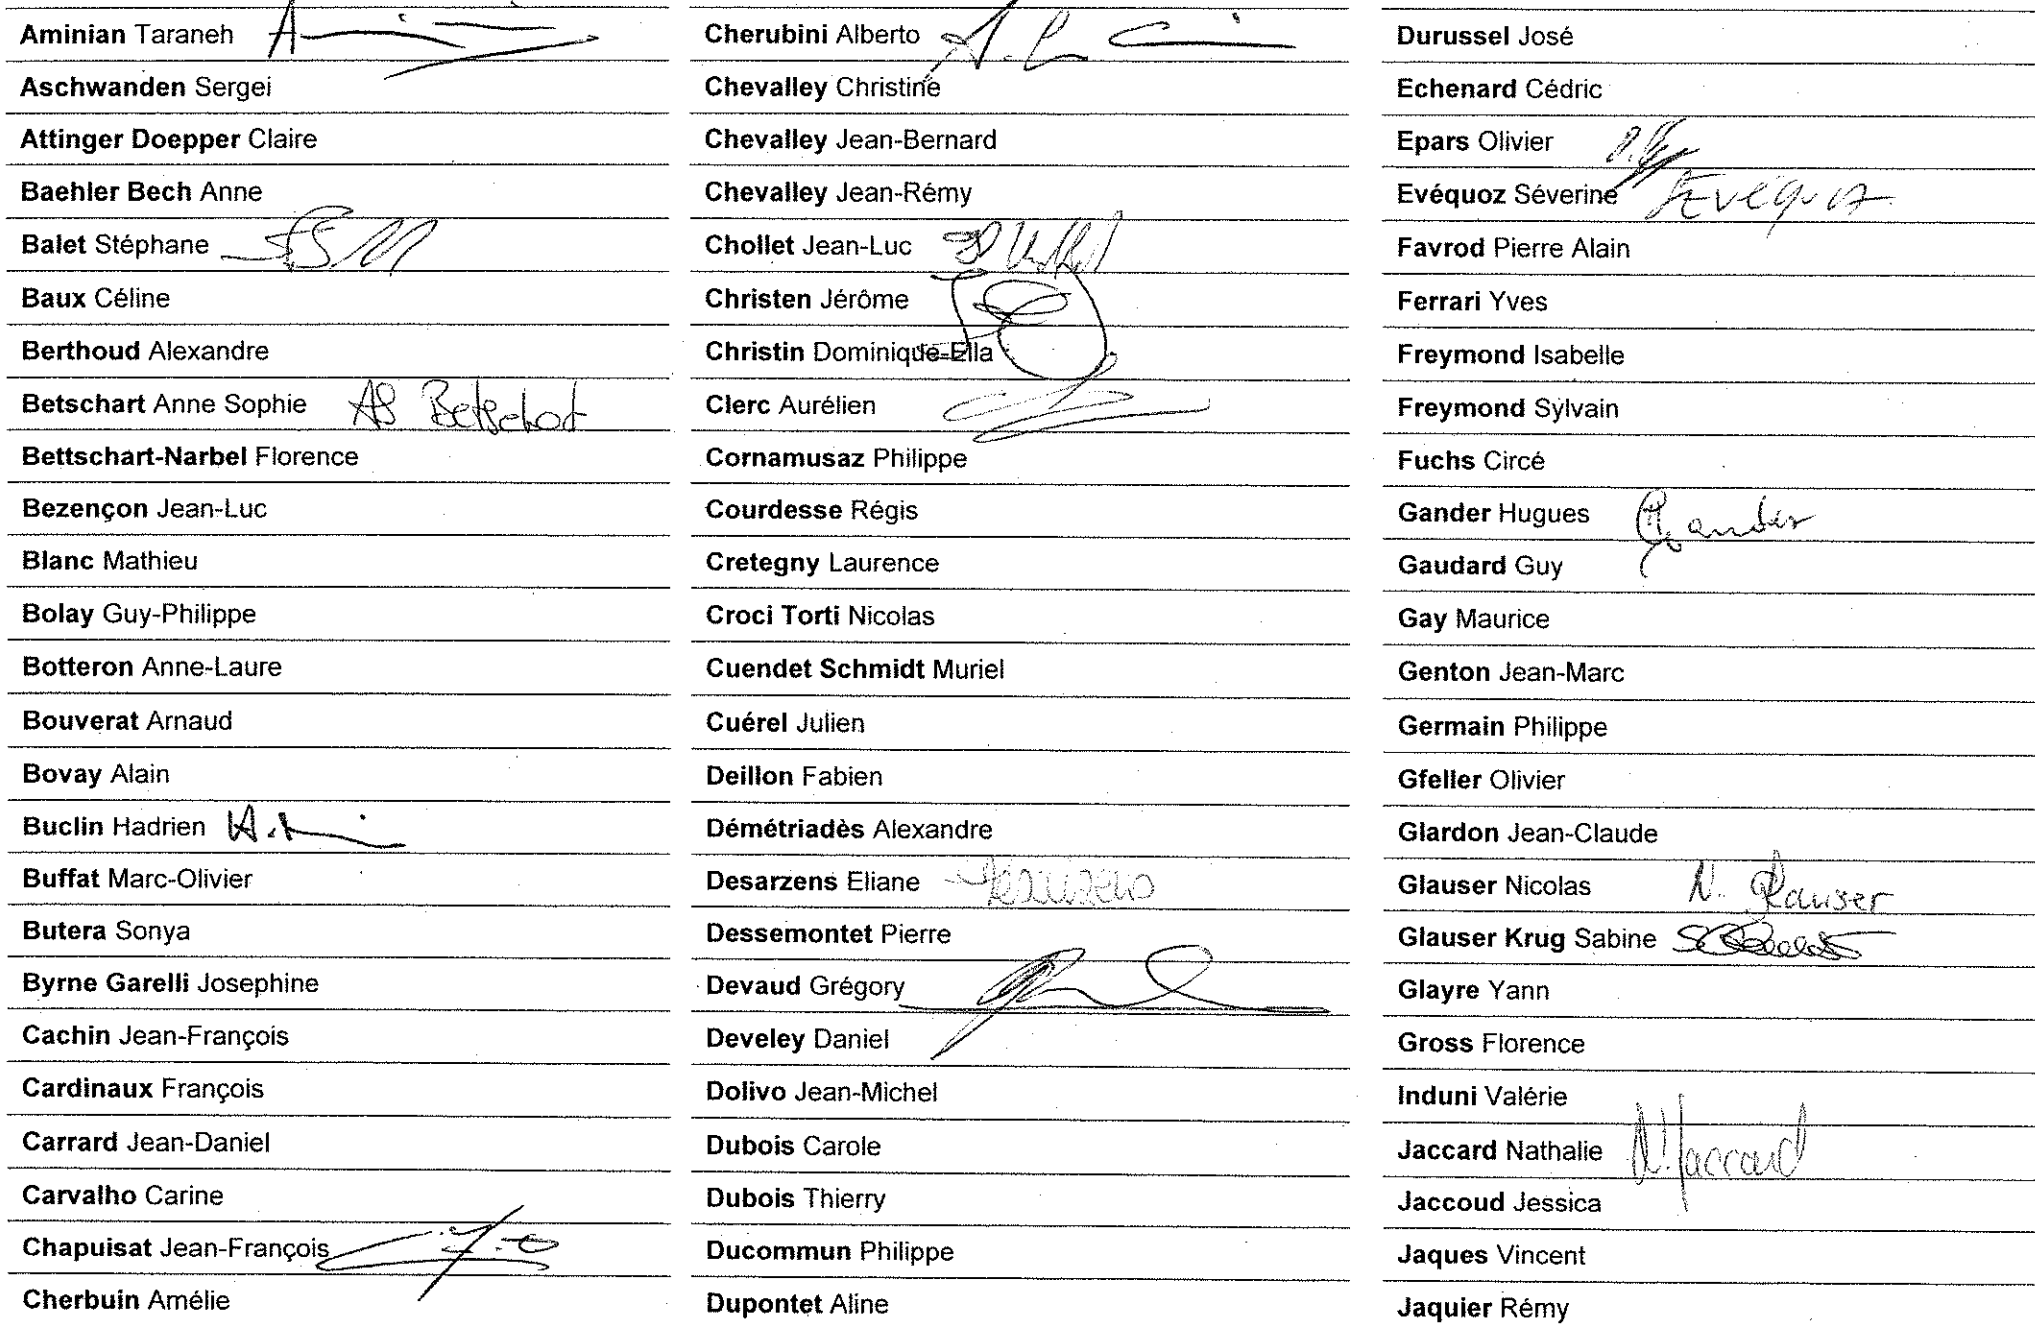 Aminian Taraneh
Aschwanden Sergei
Attinger Doepper Claire
Baehler Bech Anne
Balet Stéphane
Baux Céline
Berthoud Alexandre
Betschart Anne Sophie AS Betschart
Bettschart-Narbel Florence
Bezençon Jean-Luc
Blanc Mathieu
Bolay Guy-Philippe
Botteron Anne-Laure
Bouverat Arnaud
Bovay Alain
Buclin Hadrien
Buffat Marc-Olivier
Butera Sonya
Byrne Garelli Josephine
Cachin Jean-François
Cardinaux François
Carrard Jean-Daniel
Carvalho Carine
Chapuisat Jean-François
Cherbuin Amélie
Cherubini Alberto
Chevalley Christine
Chevalley Jean-Bernard
Chevalley Jean-Rémy
Chollet Jean-Luc
Christen Jérôme
Christin Dominique-Ella
Clerc Aurélien
Cornamusaz Philippe
Courdesse Régis
Cretegny Laurence
Croci Torti Nicolas
Cuendet Schmidt Muriel
Cuérel Julien
Deillon Fabien
Démétriadès Alexandre
Desarzens Eliane Desarzens
Dessemontet Pierre
Devaud Grégory
Develey Daniel
Dolivo Jean-Michel
Dubois Carole
Dubois Thierry
Ducommun Philippe
Dupontet Aline
Durussel José
Echenard Cédric
Epars Olivier
Evéquoz Séverine SEvéquoz
Favrod Pierre Alain
Ferrari Yves
Freymond Isabelle
Freymond Sylvain
Fuchs Circé
Gander Hugues Gander
Gaudard Guy
Gay Maurice
Genton Jean-Marc
Germain Philippe
Gfeller Olivier
Glardon Jean-Claude
Glauser Nicolas N. Glauser
Glauser Krug Sabine
Glayre Yann
Gross Florence
Induni Valérie
Jaccard Nathalie N. Jaccard
Jaccoud Jessica
Jaques Vincent
Jaquier Rémy